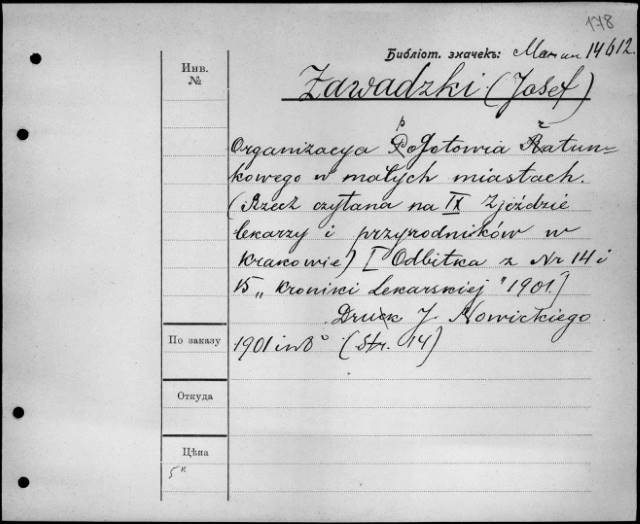 178
Библіот. значекъ: 14612.
Инв. №
Zawadzki (Josef)
Organizacya Pogotowia Ratun-
kowego w małych miastach.
(Rzecz czytana na IX Zjeździe
lekarzy i przyrodników w
Krakowie) [Odbitka z Nr 14 i
15 „Kroniki Lekarskiej" 1901]
Druck J. Nowickiego.
По заказу
1901 in 8° (Str. 14)
Откуда
Цѣна
5к